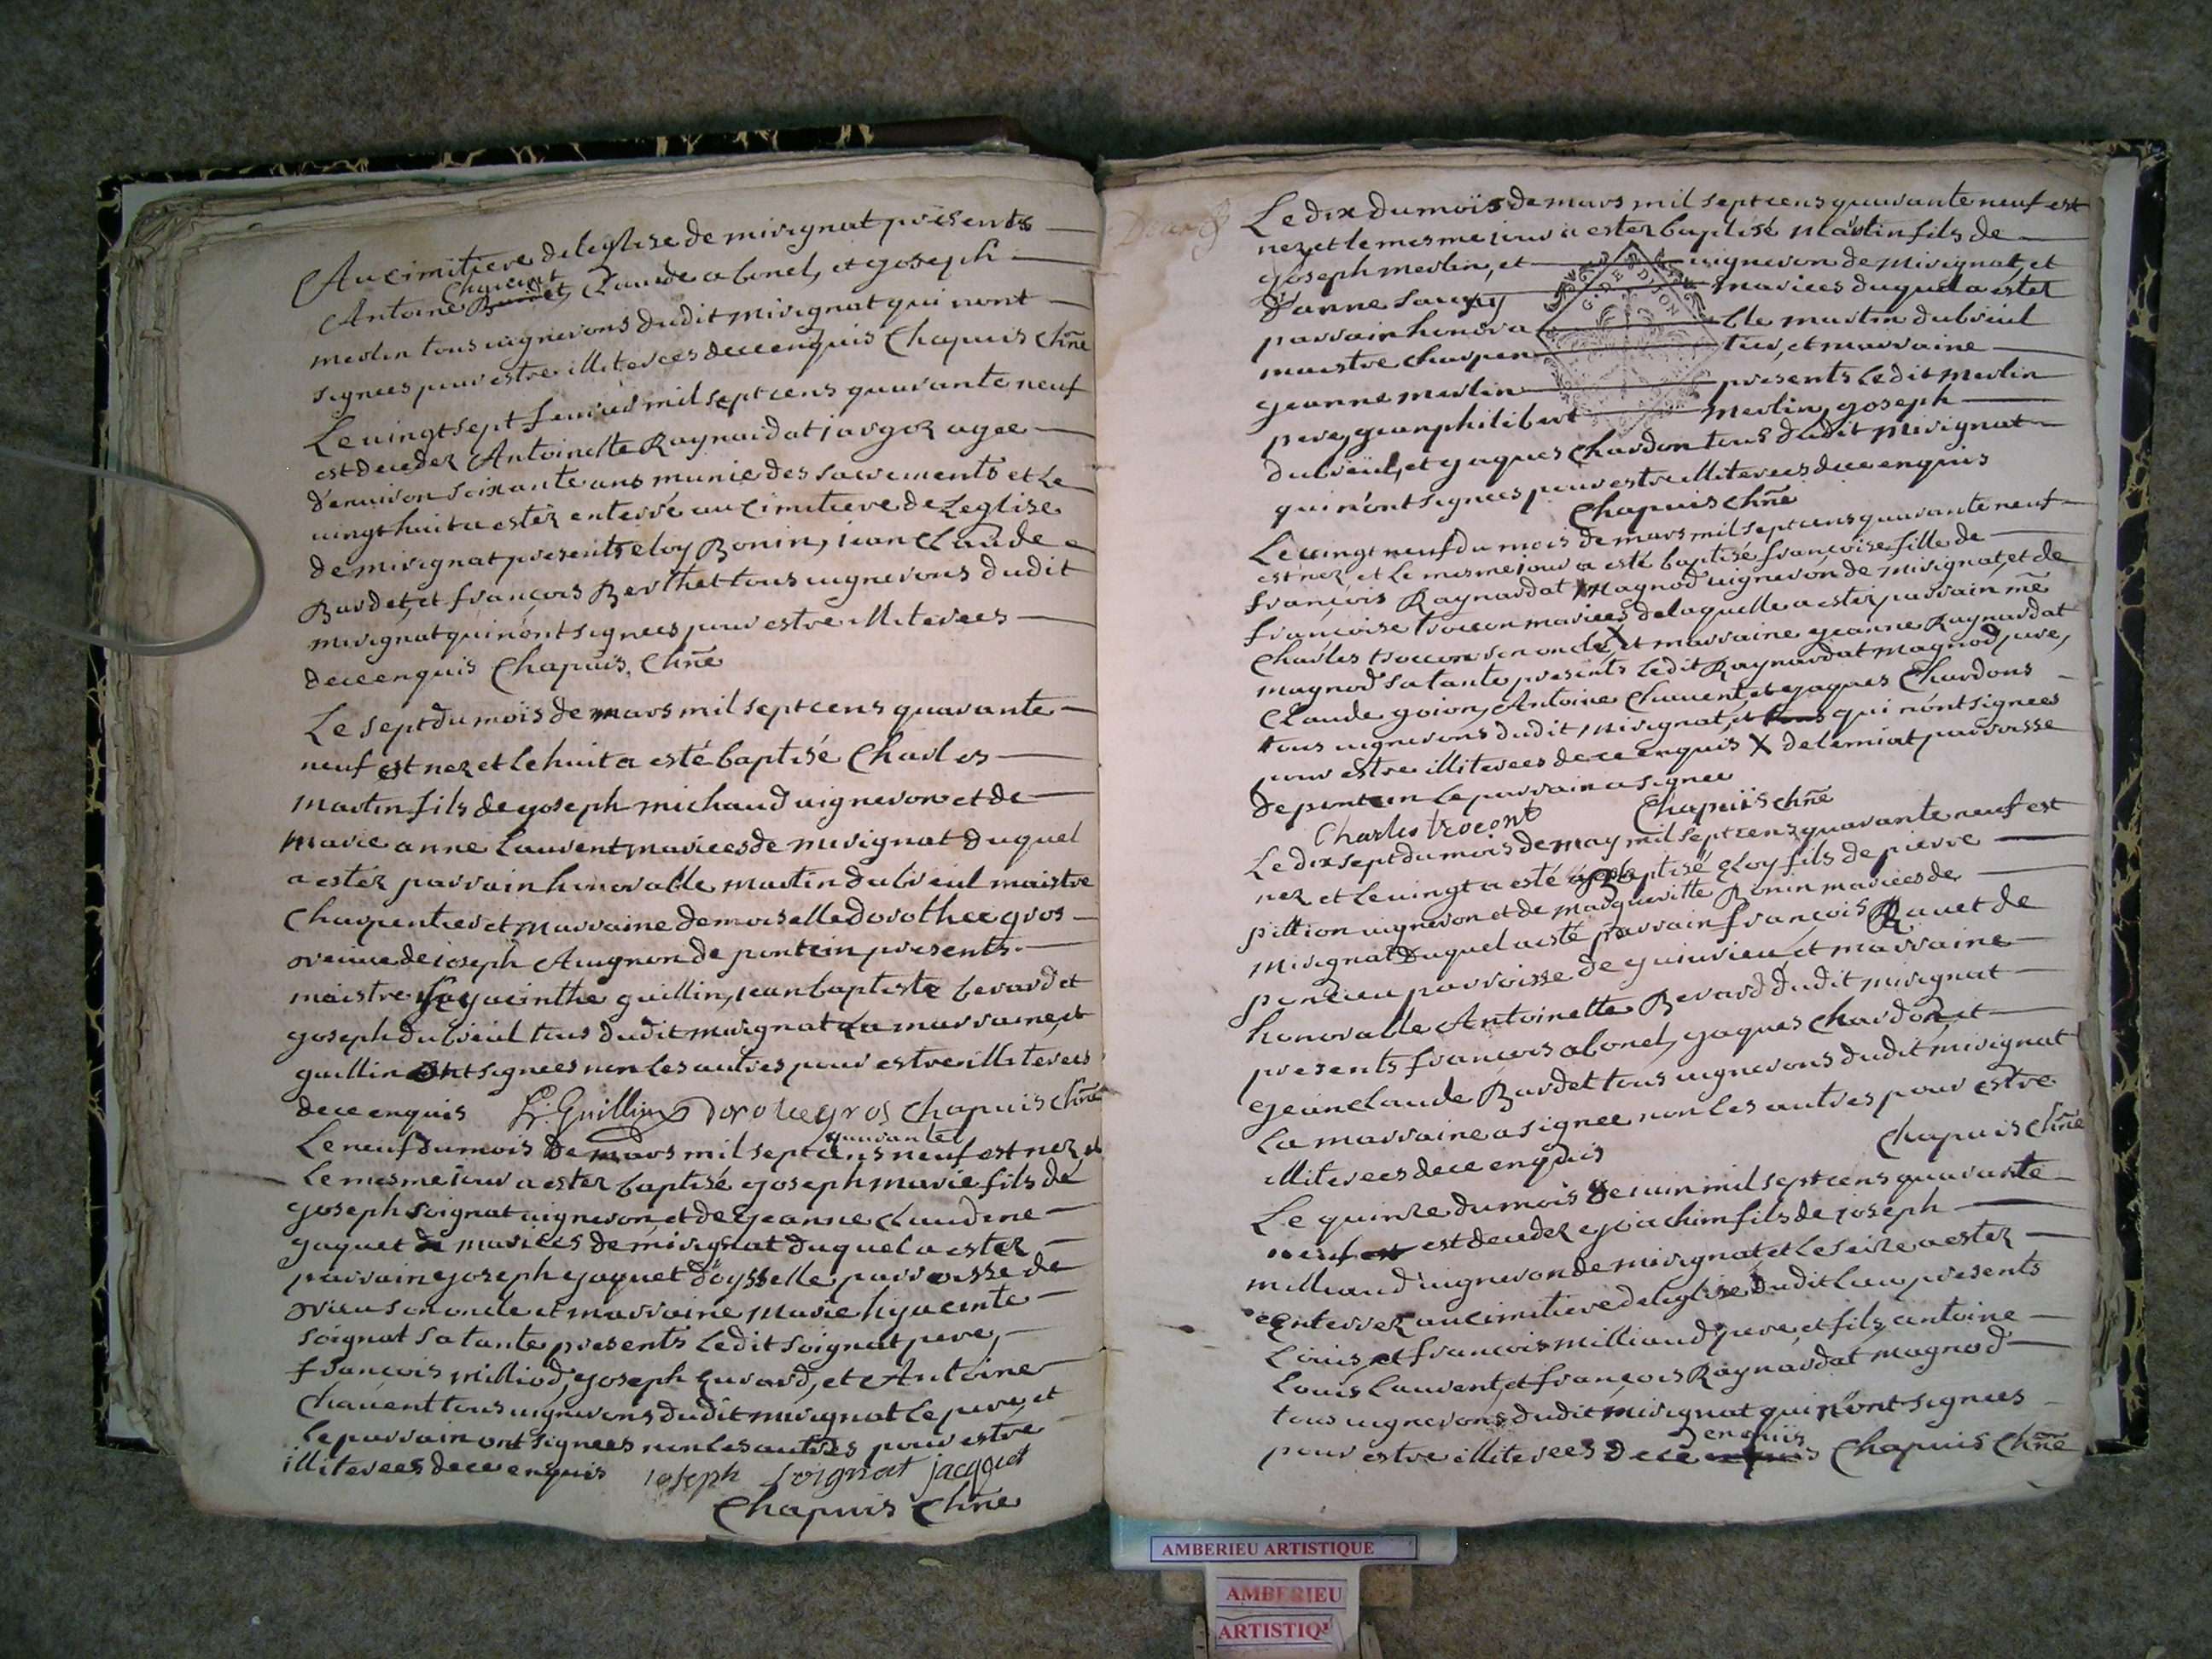 Au cimitiere de leglise de mirignat présents
Antoine Chavent Bardet, Claude abonel, et Joseph
merlin tous vignerons dudit mirignat qui nont
signees pour estre illiterees de ce enquis Chapuis Chñe
Le vingt sept fevrier mil sept cens quarante neuf
est decedez Antoinette Raynardat jargoz agee
d'environ soixante ans munie des sacrements et le
vingt huit a estéz enterré au cimitiere de Leglise
de mirignat présents eloy Bonin, jean Claude
Bardet, et françois Berthet tous vignerons dudit
mirignat qui n'ont signees pour estre illiterees
de ce enquis Chapuis, Chñe
Le sept du mois de mars mil sept cens quarante
neuf est nez et le huit a esté baptisé Charles
martin fils de joseph michaud vigneron et de
marie anne Laurent mariees de mirignat duquel
a estéz parrain honorable martin dubreul maistre
Charpentier et marraine demoiselle dorothee gros
veuve de joseph Avignon de pontein présents
maistre hyacinthe guillin, jean baptiste berard et
joseph dubreul tous dudit mirignat La marraine, et
guillin ont signees non les autres pour estre illiterees
de ce enquis h. Guillin Dorotee gros Chapuis Chñe
Le neuf du mois de mars mil sept cens quarante neuf est nez, et
le mesme jour a estez baptisé joseph marie fils de
joseph soignat vigneron, et de jeanne Claudine
jaquet de mariees de mirignat duquel a estez
parrain joseph jaquet d'oysselle parroisse de
vrieu son oncle et marraine marie hyacinte
soignat sa tante présents ledit soignat pere,
françois milliod, joseph Evrard, et Antoine
Chavent tous vignerons dudit mirignat le pere, et
le parrain ont signees non les autres pour estre
illiterees de ce enquis joseph soignat jacquet
Chapuis Chñe
Le dix du moïs de mars mil sept cens quarante neuf est
nez et le mesme jour a estez baptisé martin fils de
joseph merlin, et vigneron de mirignat, et
d'anne saugey mariees duquel a estez
parrain honora ble martin dubreul
maistre charpen tier, et marraine
jeanne merlin présents ledit merlin
pere, jean philibert merlin, joseph
dubreul, et jaques Chardon tous dudit mirignat
qui n'ont signees pour estre illiterees de ce enquis
Chapuis Chñe
G. DE DIJON
Le vingt neuf du mois de mars mil sept cens quarante neuf
est nez, et le mesme jour a esté baptisé françoise fille de
françois Raynardat magnod vigneron de mirignat, et de
françoise trocon mariees de laquelle a estez parrain me
Charles trocon son oncle X, et marraine jeanne Raynardat
magnod sa tante présents ledit Raynardat magnod pere,
Claude goion, Antoine Chavent, et jaques Chardons
tous vignerons dudit mirignat, et tous qui n'ont signees
pour estre illiterees de ce enquis X de lemiat parroisse
de pontein le parrain a signee
Charles trocont Chapuis Chñe
Le dix sept du mois de may mil sept cens quarante neuf est
nez et le vingt a esté baptisé Eloy fils de pierre
pittion vigneron et de marguerite Bonin mariees de
mirignat duquel a esté parrain françois Ravet de
poncieu parroisse de jujurieu et marraine
honorable Antoinette Berard dudit mirignat
présents françois abonel, jaques Chardon, et
jean claude Bardet tous vignerons dudit mirignat
La marraine a signee non les autres pour estre
illiterees de ce enquis Chapuis Chñe
Le quinze du mois de juin mil sept cens quarante
neuf est est decedez joachim fils de joseph
milliand vigneron de mirignat, et le seize a estez
enterrez au cimitiere de leglise dudit lieu présents
Louis, et françois milliaud pere, et fils antoine
Louis Laurent, et françois Raynardat magnod
tous vignerons dudit mirignat qui n'ont signees
pour estre illiterees de ce enquis Chapuis Chñe
AMBERIEU ARTISTIQUE
AMBERIEU
ARTISTIQU